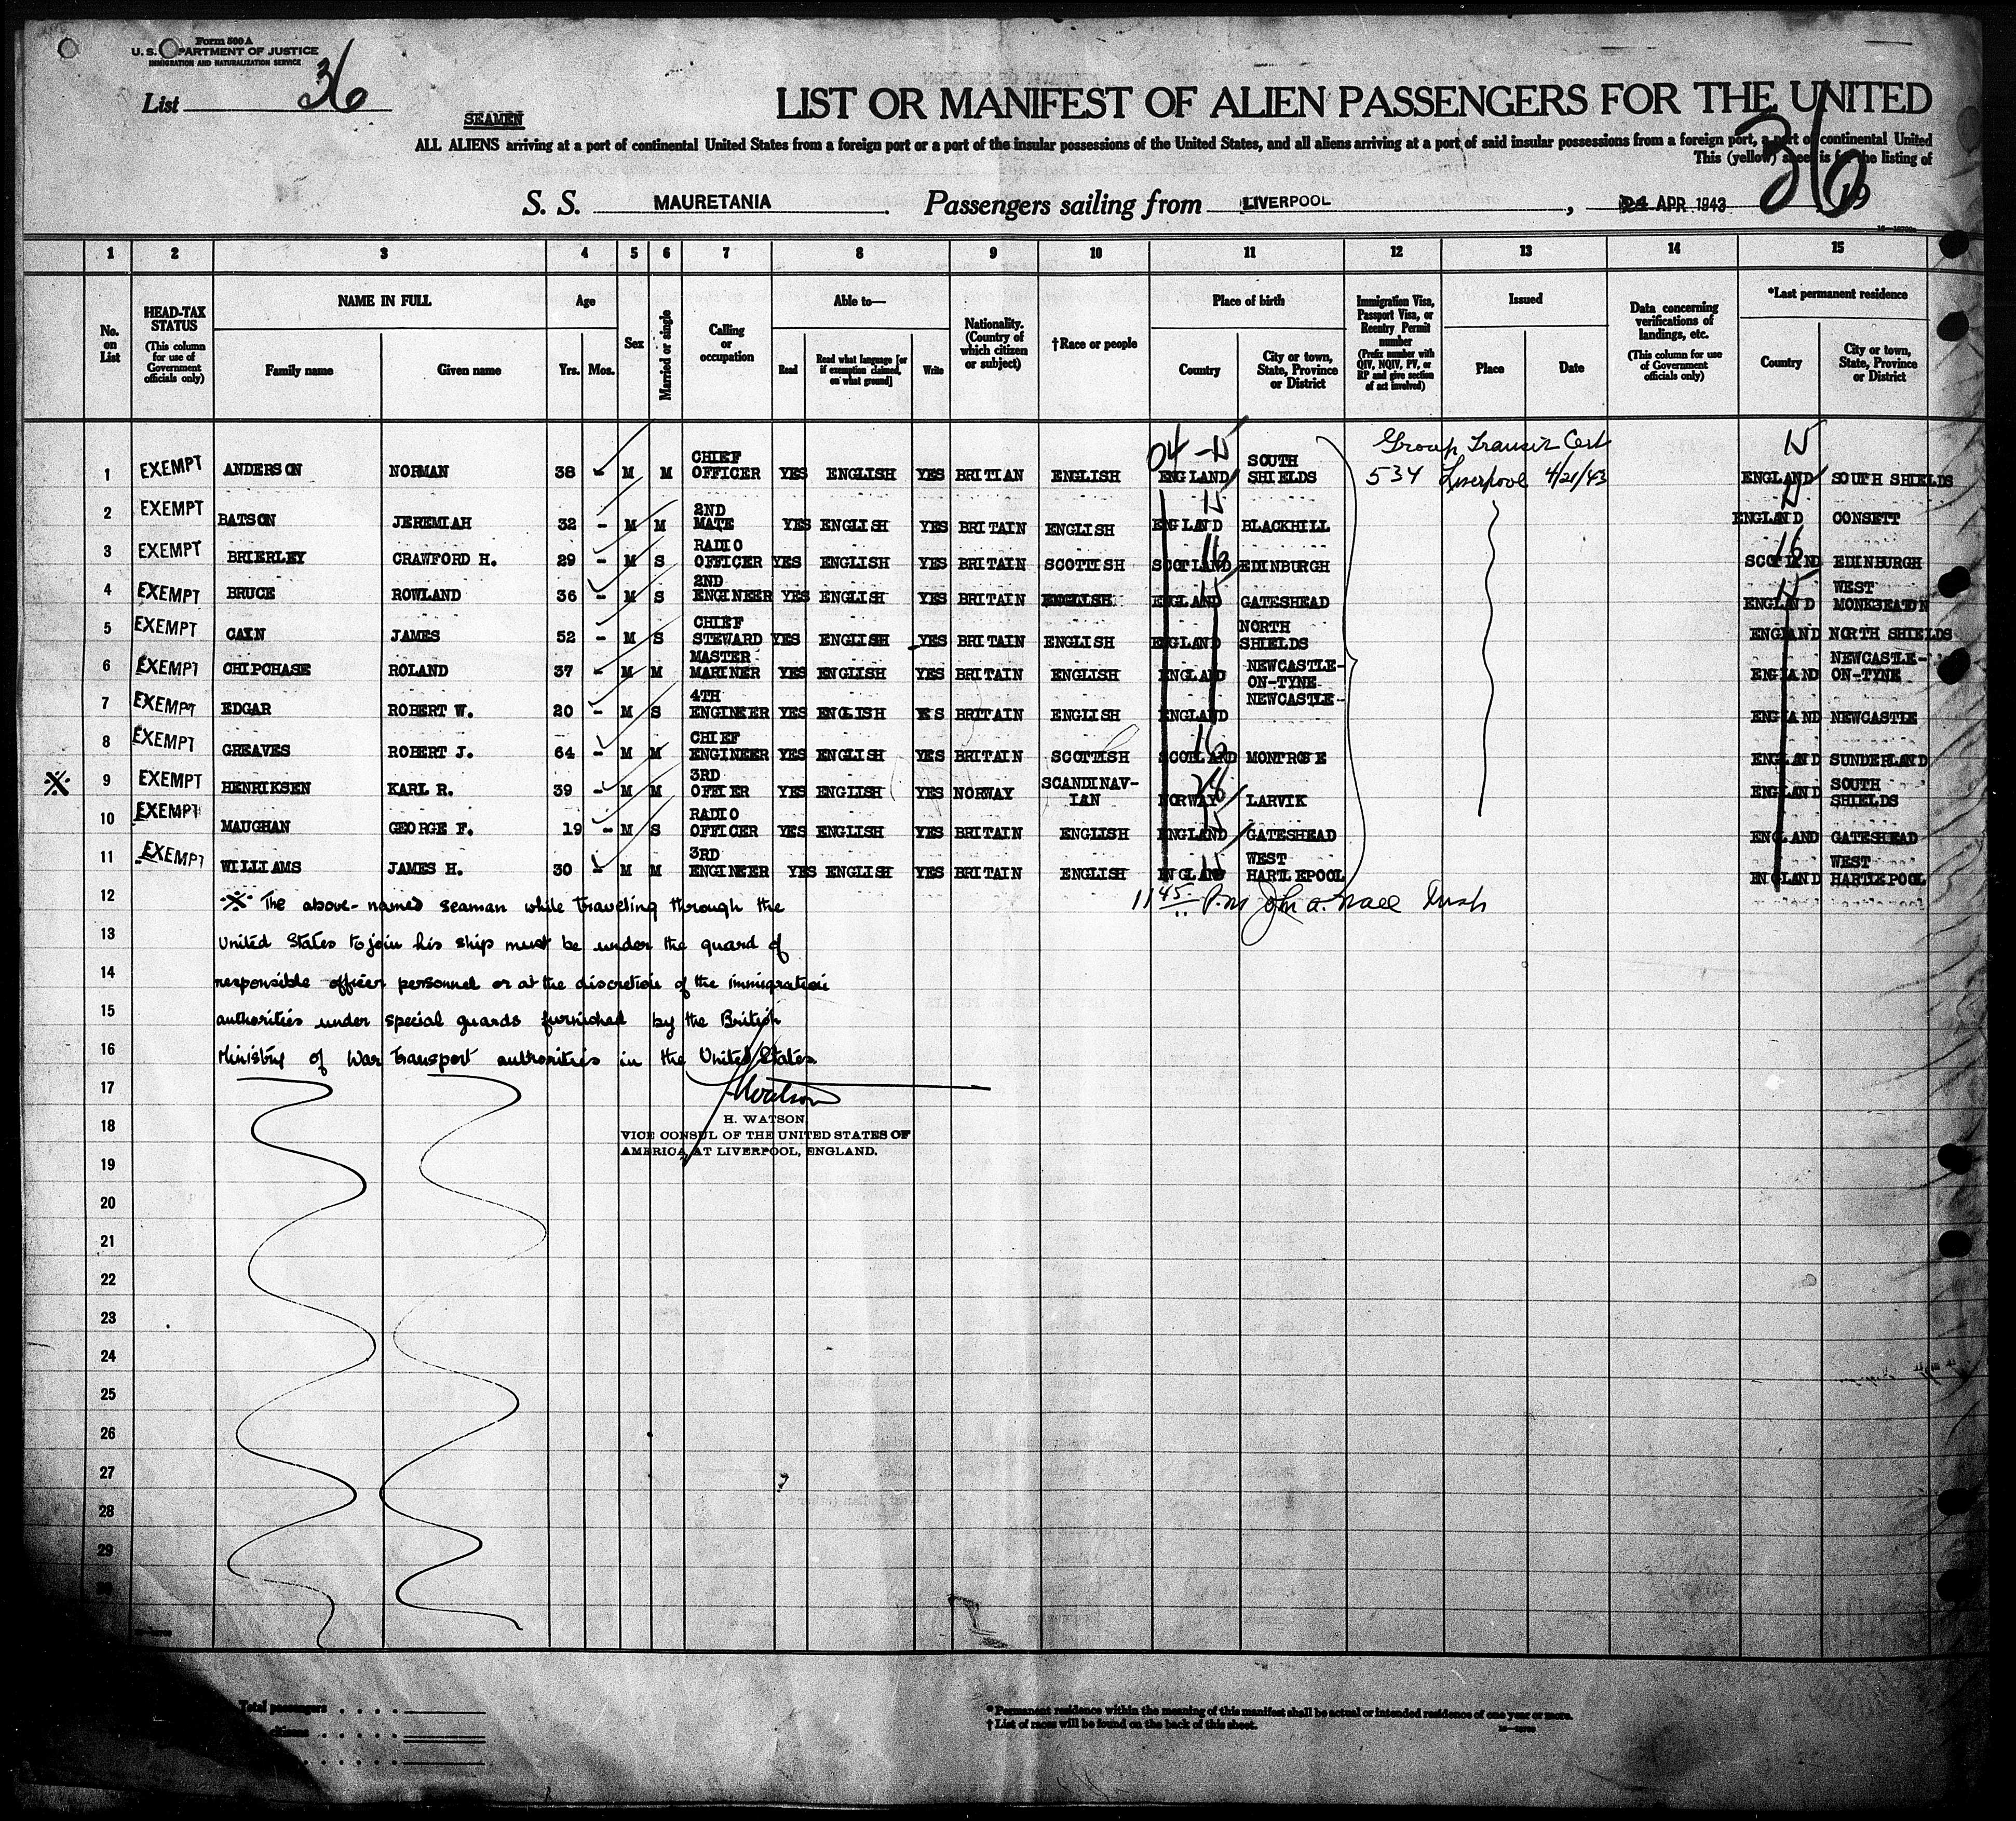 Form 500 A
U. S. DEPARTMENT OF JUSTICE
IMMIGRATION AND NATURALIZATION SERVICE
List 36
SEAMEN
LIST OR MANIFEST OF ALIEN PASSENGERS FOR THE UNITED
36
ALL ALIENS arriving at a port of continental United States from a foreign port or a port of the insular possessions of the United States, and all aliens arriving at a port of said insular possessions from a foreign port, a port of continental United
This (yellow) sheet is for the listing of
S. S. MAURETANIA Passengers sailing from LIVERPOOL, 24 APR 1943
1 2 3 4 5 6 7 8 9 10 11 12 13 14 15
No. on List
HEAD-TAX STATUS
(This column for use of Government officials only)
NAME IN FULL
Family name
Given name
Age
Yrs. Mos.
Sex
Married or single
Calling or occupation
Able to—
Read
Read what language [or if exemption claimed, on what ground]
Write
Nationality. (Country of which citizen or subject)
†Race or people
Place of birth
Country
City or town, State, Province or District
Immigration Visa, Passport Visa, or Reentry Permit number
(Prefix number with QIV, NQIV, PV, or RP and give section of act involved)
Issued
Place
Date
Data concerning verifications of landings, etc.
(This column for use of Government officials only)
*Last permanent residence
Country
City or town, State, Province or District
04 - 15 Group Transit Cert 15
1 EXEMPT ANDERSON NORMAN 38 - M M CHIEF OFFICER YES ENGLISH YES BRITIAN ENGLISH ENGLAND SOUTH SHIELDS 534 Liverpool 4/21/43 ENGLAND SOUTH SHIELDS
2 EXEMPT BATSON JEREMIAH 32 - M M 2ND MATE YES ENGLISH YES BRITAIN ENGLISH ENGLAND 15 BLACKHILL ENGLAND CONSETT
3 EXEMPT BRIERLEY CRAWFORD H. 29 - M S RADIO OFFICER YES ENGLISH YES BRITAIN SCOTTISH SCOTLAND 16 EDINBURGH SCOTLAND 16 EDINBURGH
4 EXEMPT BRUCE ROWLAND 36 - M S 2ND ENGINEER YES ENGLISH YES BRITAIN ENGLISH ENGLAND 15 GATESHEAD ENGLAND 15 WEST MONKSEATON
5 EXEMPT CAIN JAMES 52 - M S CHIEF STEWARD YES ENGLISH YES BRITAIN ENGLISH ENGLAND NORTH SHIELDS ENGLAND NORTH SHIELDS
6 EXEMPT CHIPCHASE ROLAND 37 - M M MASTER MARINER YES ENGLISH YES BRITAIN ENGLISH ENGLAND NEWCASTLE-ON-TYNE ENGLAND NEWCASTLE-ON-TYNE
7 EXEMPT EDGAR ROBERT W. 20 - M S 4TH ENGINEER YES ENGLISH YES BRITAIN ENGLISH ENGLAND NEWCASTLE- ENGLAND NEWCASTLE
8 EXEMPT GREAVES ROBERT J. 64 - M M CHIEF ENGINEER YES ENGLISH YES BRITAIN SCOTTISH SCOTLAND 16 MONTROSE ENGLAND SUNDERLAND
※ 9 EXEMPT HENRIKSEN KARL R. 39 - M M 3RD OFFIER YES ENGLISH YES NORWAY SCANDINAV-IAN NORWAY 28 LARVIK ENGLAND SOUTH SHIELDS
10 EXEMPT MAUGHAN GEORGE F. 19 - M S RADIO OFFICER YES ENGLISH YES BRITAIN ENGLISH ENGLAND 15 GATESHEAD ENGLAND GATESHEAD
11 EXEMPT WILLIAMS JAMES H. 30 - M M 3RD ENGINEER YES ENGLISH YES BRITAIN ENGLISH ENGLAND 15 WEST HARTLEPOOL ENGLAND WEST HARTLEPOOL
12 ※ The above-named seaman while traveling through the 11 45 P.M John A.
13 United States to join his ship must be under the guard of
14 responsible officer personnel or at the discretion of the immigration
15 authorities under special guards furnished by the British
16 Ministry of War Transport authorities in the United States.
17 HWatson
18 H. WATSON
VICE CONSUL OF THE UNITED STATES OF
19 AMERICA, AT LIVERPOOL, ENGLAND.
20
21
22
23
24
25
26
27
28
29
30
Total passengers
citizens
*Permanent residence within the meaning of this manifest shall be actual or intended residence of one year or more.
†List of races will be found on the back of this sheet.